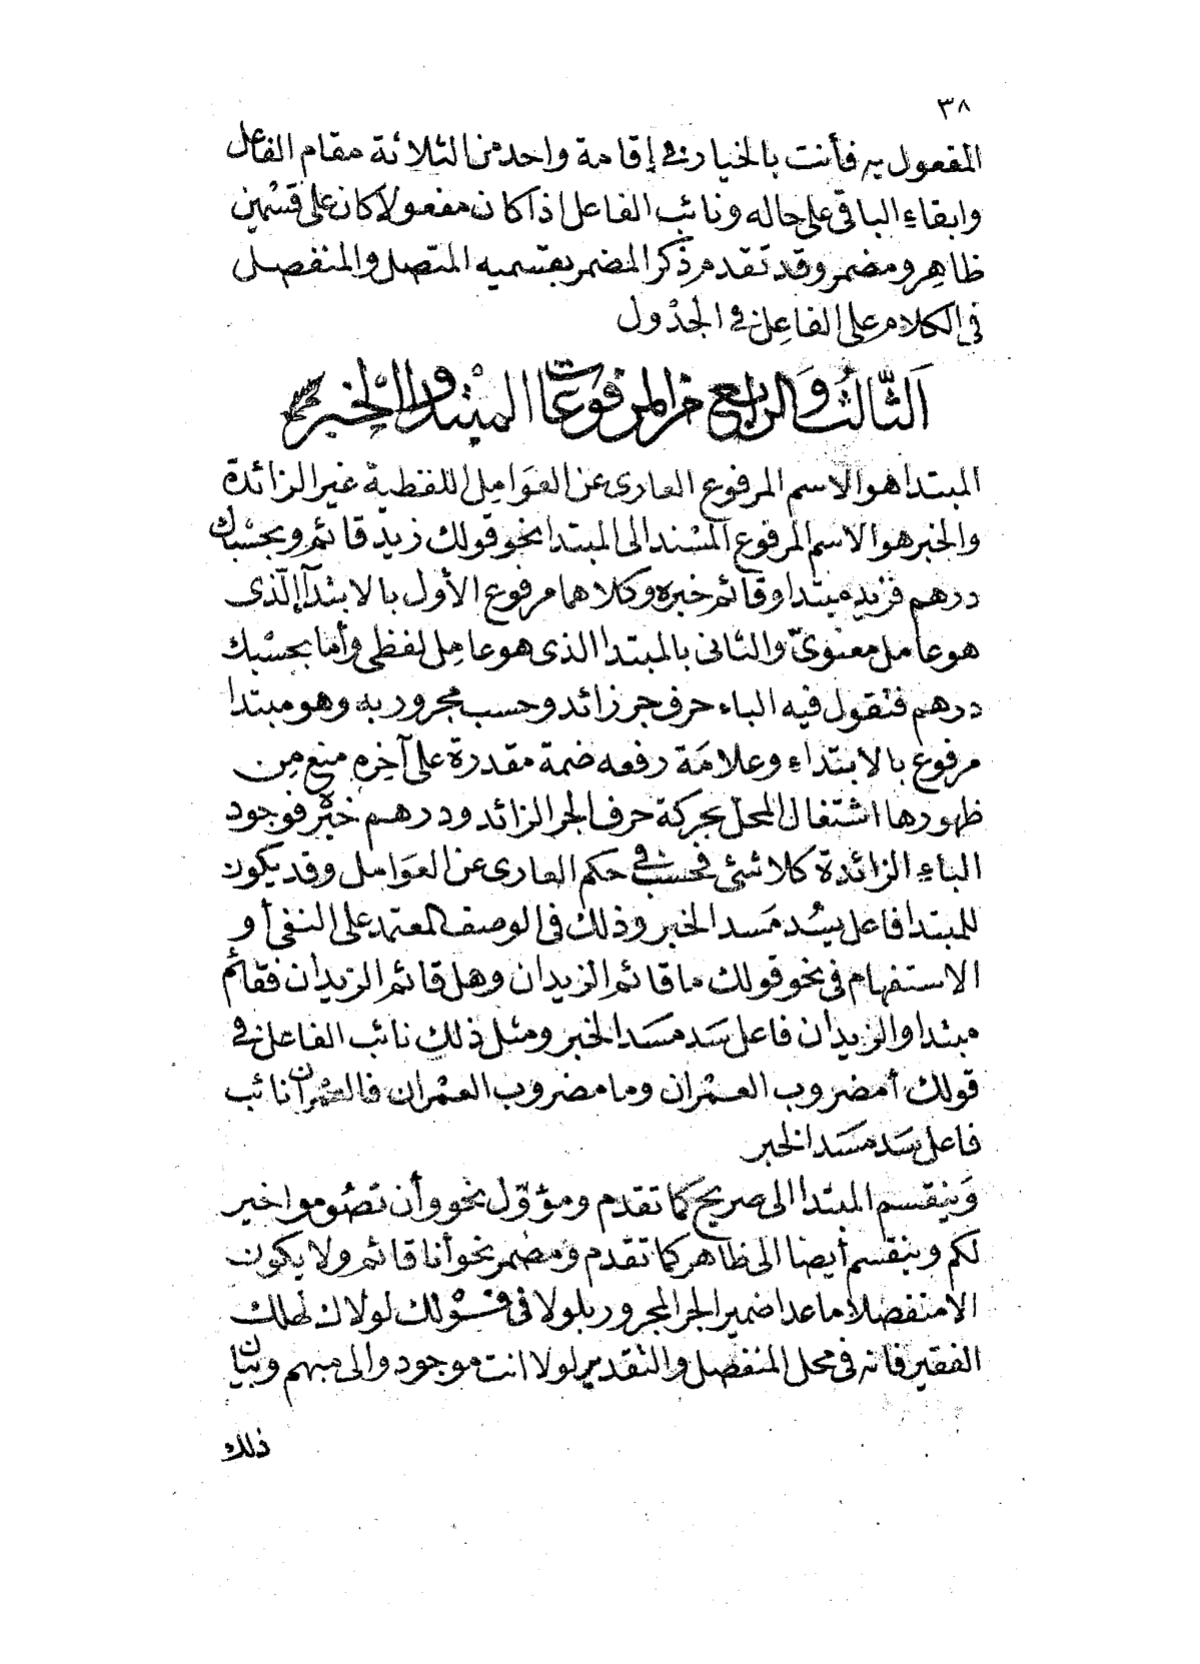 ٣٨
المفعول به فأنت بالخيار فى إقامة واحد من الثلاثة مقام الفاعل
وابقاء الباقى على حاله ونائب الفاعل اذا كان مفعولا كان على قسْمين
ظاهِر ومضمر وقد تقدم ذِكر المضمر بقسميه المتصل والمنفصل
فى الكلام على الفاعِل فى الجدْول
اَلثَّالُث وَالرابع من المرفوعات المبْتدا والخبر
المبتدا هو الاسم المرفوع العارى عن العَوامِل اللفظية غير الزائدة
والخبر هو الاسم المرفوع المسْند الى المبتدا نحو قولك زيد قائم وبحسْبك
درهم فزيد مبتدا وقائم خبره وكلاهما مرفوع الأول بالابتدآ الّذى
هو عامل معنوىّ والثانى بالمبتدا الذى هو عامِل لفظى وأما بحسْبك
درهم فتقول فيه الباء حرف جر زائد وحسب مجرور به وهو مبتدا
مرفوع بالابتداء وعلامَة رفعه ضمة مقدرة على آخِره منع مِن
ظهورها اشتغال المحل بحركة حرف الجر الزائد ودرهم خبره فوجود
الباء الزائدة كلا شئى فحسب فى حكم العارى عن العَوامِل وقد يكون
للمبتدا فاعل يسُد مَسد الخبر وذلك فى الوصف المعتمد على النفى أو
الاستفهام فى نحو قولك ما قائم الزيدان وهل قائم الزيدان فقائم
مبتدا والزيدان فاعل سَد مسَد الخبر ومثل ذلك نائب الفاعل فى
قولك أمضروب العمْران وما مضروب العمْران فالعمْران نائب
فاعل سَد مسَد الخبر
وَينقسم المبتدا الى صريح كما تقدم ومؤوّل نحو وأن تصُوموا خير
لكم وينقسم أيضا الى ظاهر كما تقدم ومضمر نحو أنا قائم ولا يكون
الا منفصلا ما عدا ضمير الجر المجرور بلولا فى قوْلك لولاك لهلك
الفقير فانه فى محل المنفصل والتقدير لولا انت موجود والى مبهم وبيان
ذلك